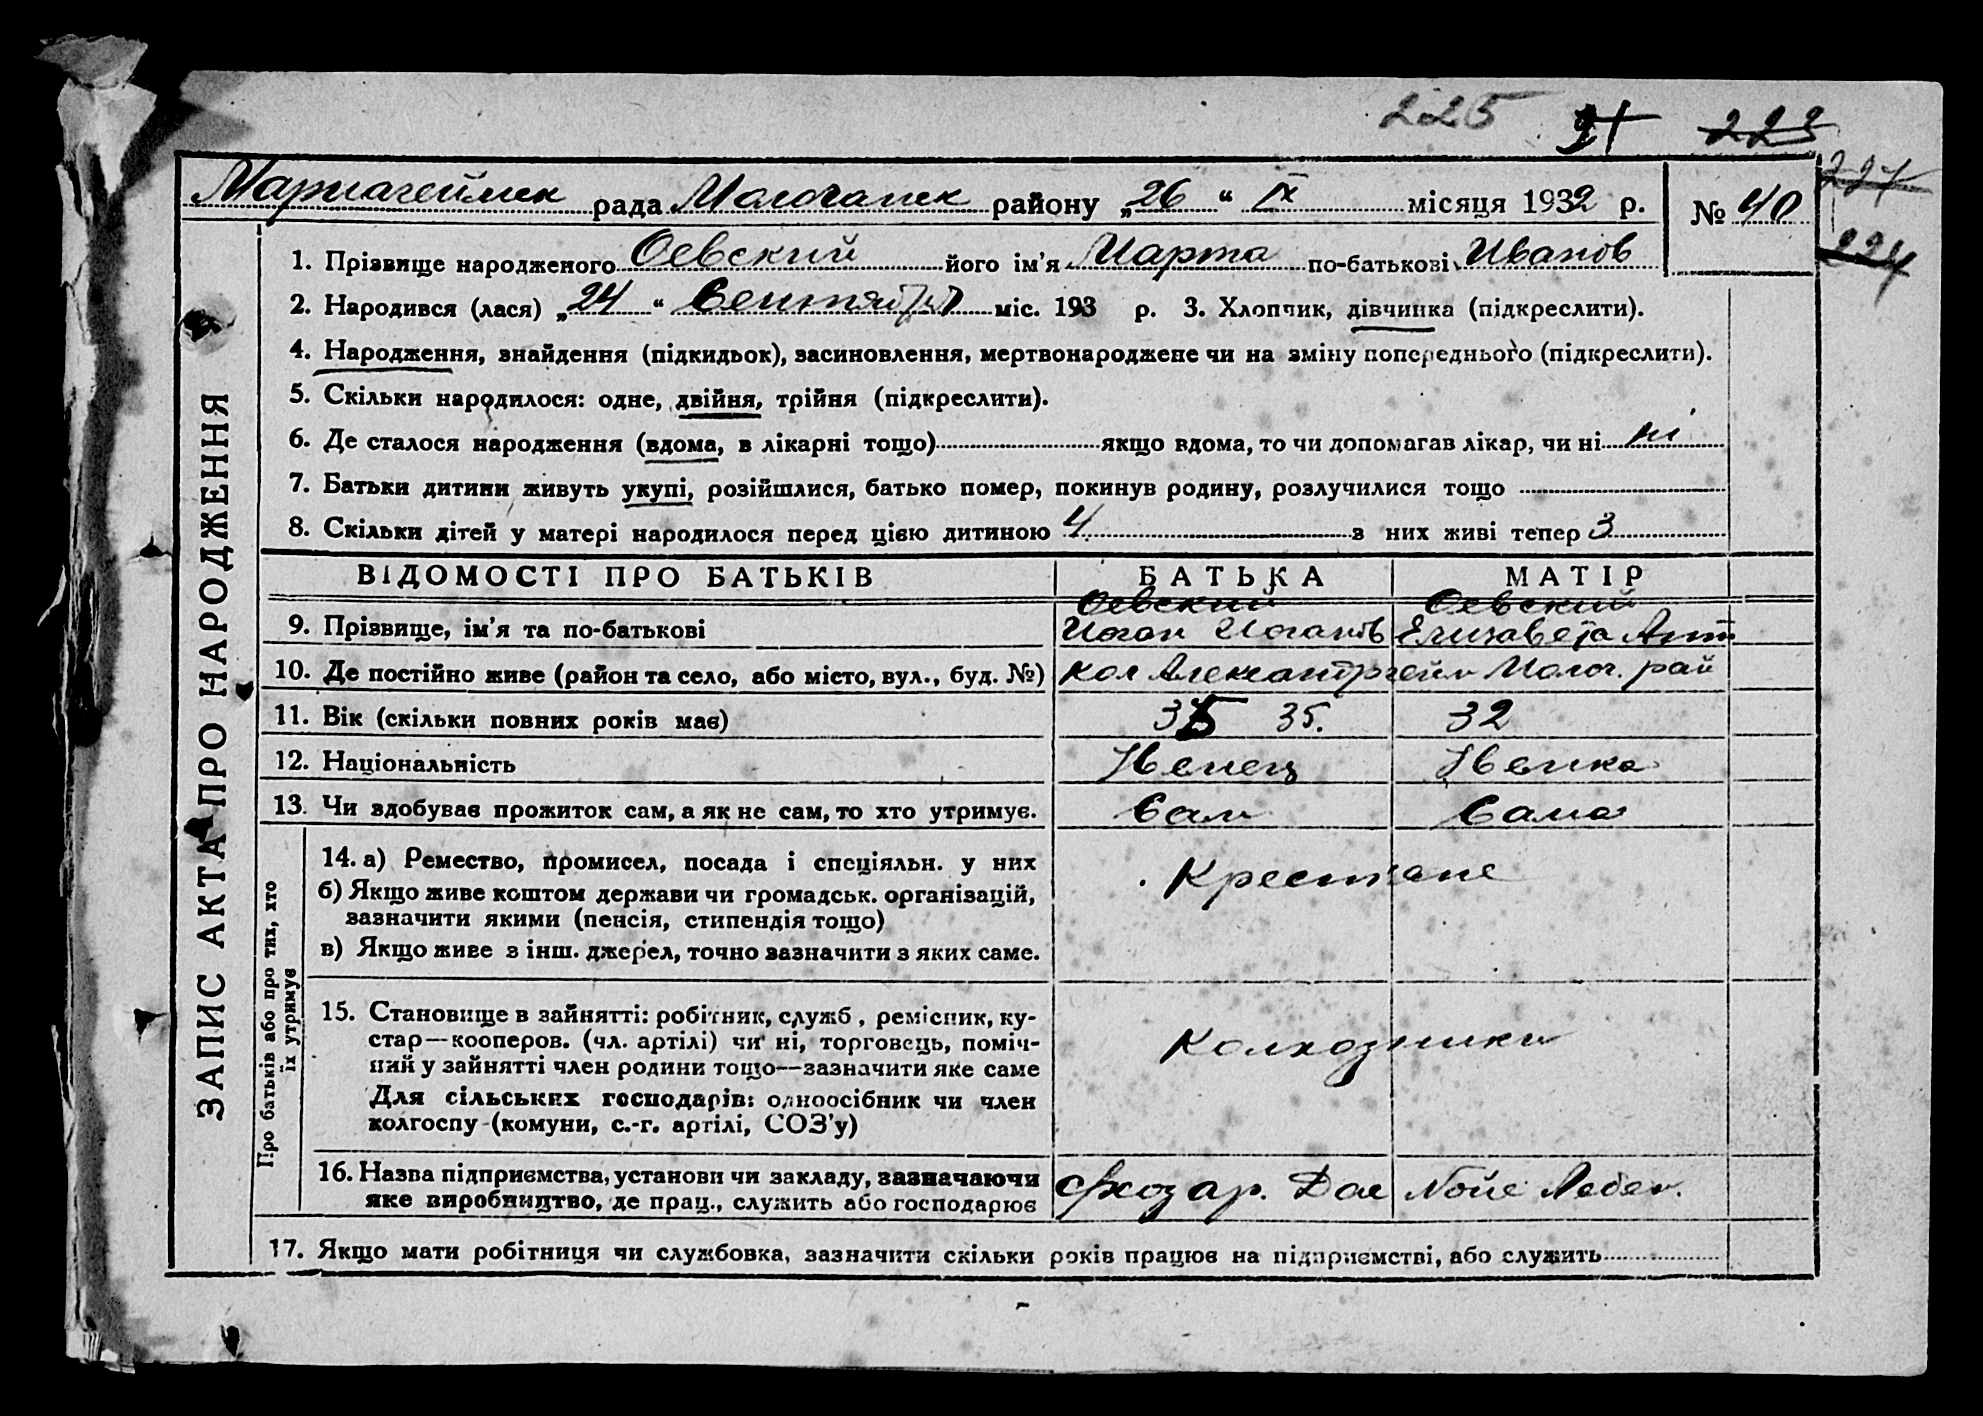 225 21 223
227
Мариагеймск рада Молочанск району „26“ IX місяця 1932 р. № 40
224
1. Прізвище народженого Оевский його ім’я Марта по-батькові Иванов
2. Народився (лася) „24“ Сентября міс. 193 р. 3. Хлопчик, дівчинка (підкреслити).
4. Народження, знайдення (підкидьок), засиновлення, мертвонароджене чи на зміну попереднього (підкреслити).
5. Скільки народилося: одне, двійня, трійня (підкреслити).
6. Де сталося народження (вдома, в лікарні тощо) якщо вдома, то чи допомагав лікар, чи ні ні
7. Батьки дитини живуть укупі, розійшлися, батько помер, покинув родину, розлучилися тощо
8. Скільки дітей у матері народилося перед цією дитиною 4 з них живі тепер 3
ЗАПИС АКТА ПРО НАРОДЖЕННЯ
ВІДОМОСТІ ПРО БАТЬКІВ БАТЬКА МАТІР
Оевский Оевский
9. Прізвище, ім’я та по-батькові Иоган Иоганов Елизавета Ант
10. Де постійно живе (район та село, або місто, вул., буд. №) Кол Александргейм Молоч. рай
11. Вік (скільки повних років має) 35 35. 32
12. Національність Немец Немка
13. Чи здобував прожиток сам, а як не сам, то хто утримує. Сам Сама
Про батьків або про тих, хто
їх утримує
14. а) Ремество, промисел, посада і спеціяльн. у них Крестяне
б) Якщо живе коштом держави чи громадськ. організацій,
зазначити якими (пенсія, стипендія тощо)
в) Якщо живе з інш. джерел, точно зазначити з яких саме.
15. Становище в зайнятті: робітник, служб, ремісник, ку-
стар—кооперов. (чл. артілі) чи ні, торговець, поміч- Колхозники
ний у зайнятті член родини тощо—зазначити яке саме
Для сільських господарів: одноосібник чи член
колгоспу (комуни, с.-г. артілі, СОЗ’у)
16. Назва підприємства, установи чи закладу, зазначаючи
яке виробництво, де прац., служить або господарює схоз ар. Дас Нойе Лебен.
17. Якщо мати робітниця чи службовка, зазначити скільки років працює на підприємстві, або служить